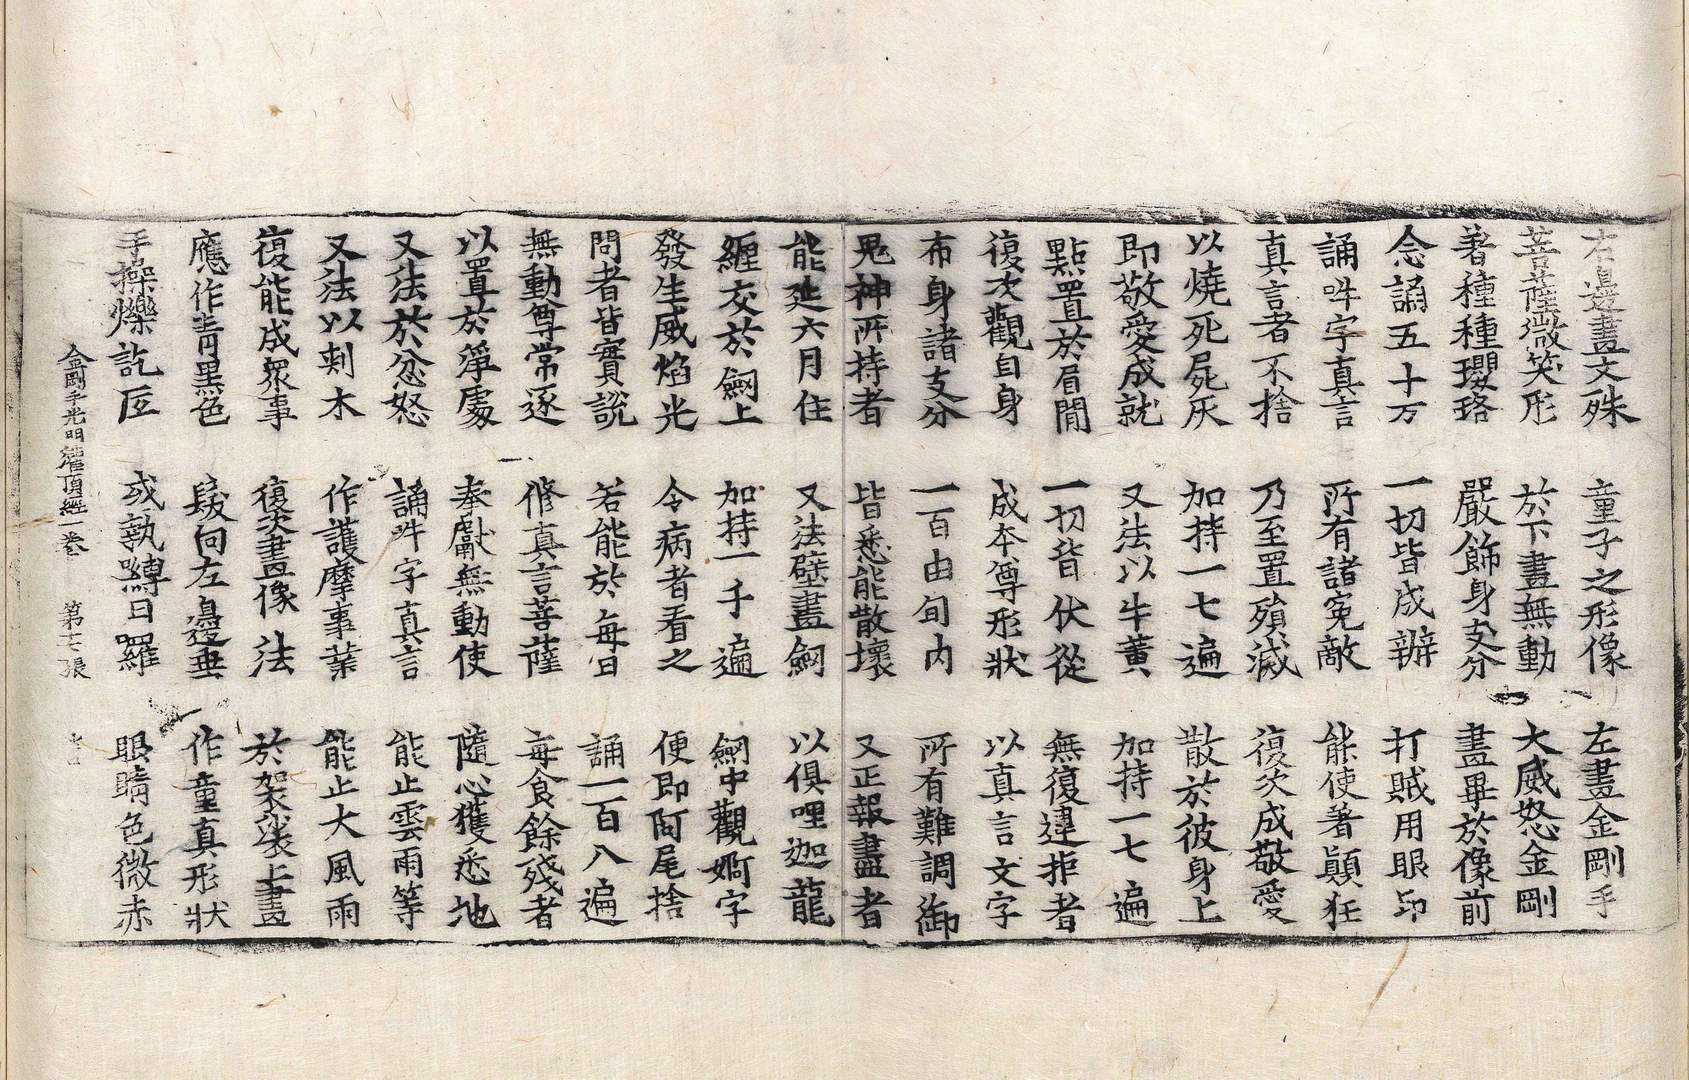 右邊畫文殊 童子之形像 左畫金剛手
菩薩微笑形 於下畫無動 大威怒金剛
著種種瓔珞 嚴飾身支分 畫畢於像前
念誦五十万 一切皆成辦 打賊用眼印
誦吽字真言 所有諸寃敵 能使著顛狂
真言者不捨 乃至置殞滅 復次成敬愛
以燒死屍灰 加持一七遍 散於彼身上
即敬愛成就 又法以牛黃 加持一七遍
點置於眉間 一切皆伏從 無復違拒者
復次觀自身 成本尊形狀 以真言文字
布身諸支分 一百由旬內 所有難調御
鬼神所持者 皆悉能散壞 又正報盡者
能延六月住 又法壁畫劒 以俱哩迦龍
纏交於劒上 加持一千遍 劒中觀婀字
發生威焰光 令病者看之 便即阿尾捨
問者皆實說 若能於每日 誦一百八遍
無動尊常逐 修真言菩薩 每食餘殘者
以置於淨處 奉獻無動使 隨心獲悉地
又法於忿怒 誦吽字真言 能止雲雨等
又法以剌木 作護摩事業 能止大風雨
復能成眾事 復次畫像法 於袈裟上畫
應作青黑色 髮向左邊垂 作童真形狀
手操爍訖底 或執嚩日囉 眼睛色微赤
金剛手光明灌頂經一卷 第 張